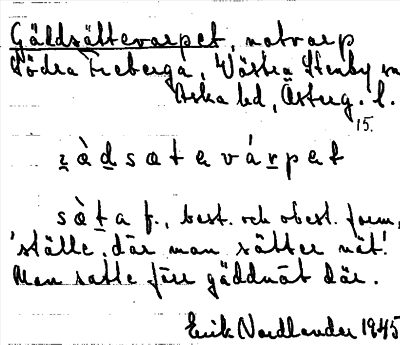 Gäddsättevarpet, notvarp
Södra Freberga, Västra Stenby sn
Aska hd, Österg. l.
15.
ꞟà̱ḏsatevárpet
sàt̲a f., best. och obest. form,
'ställe, där man sätter nät'.
Man satte förr gäddnät där.
Erik Nordlander 1945